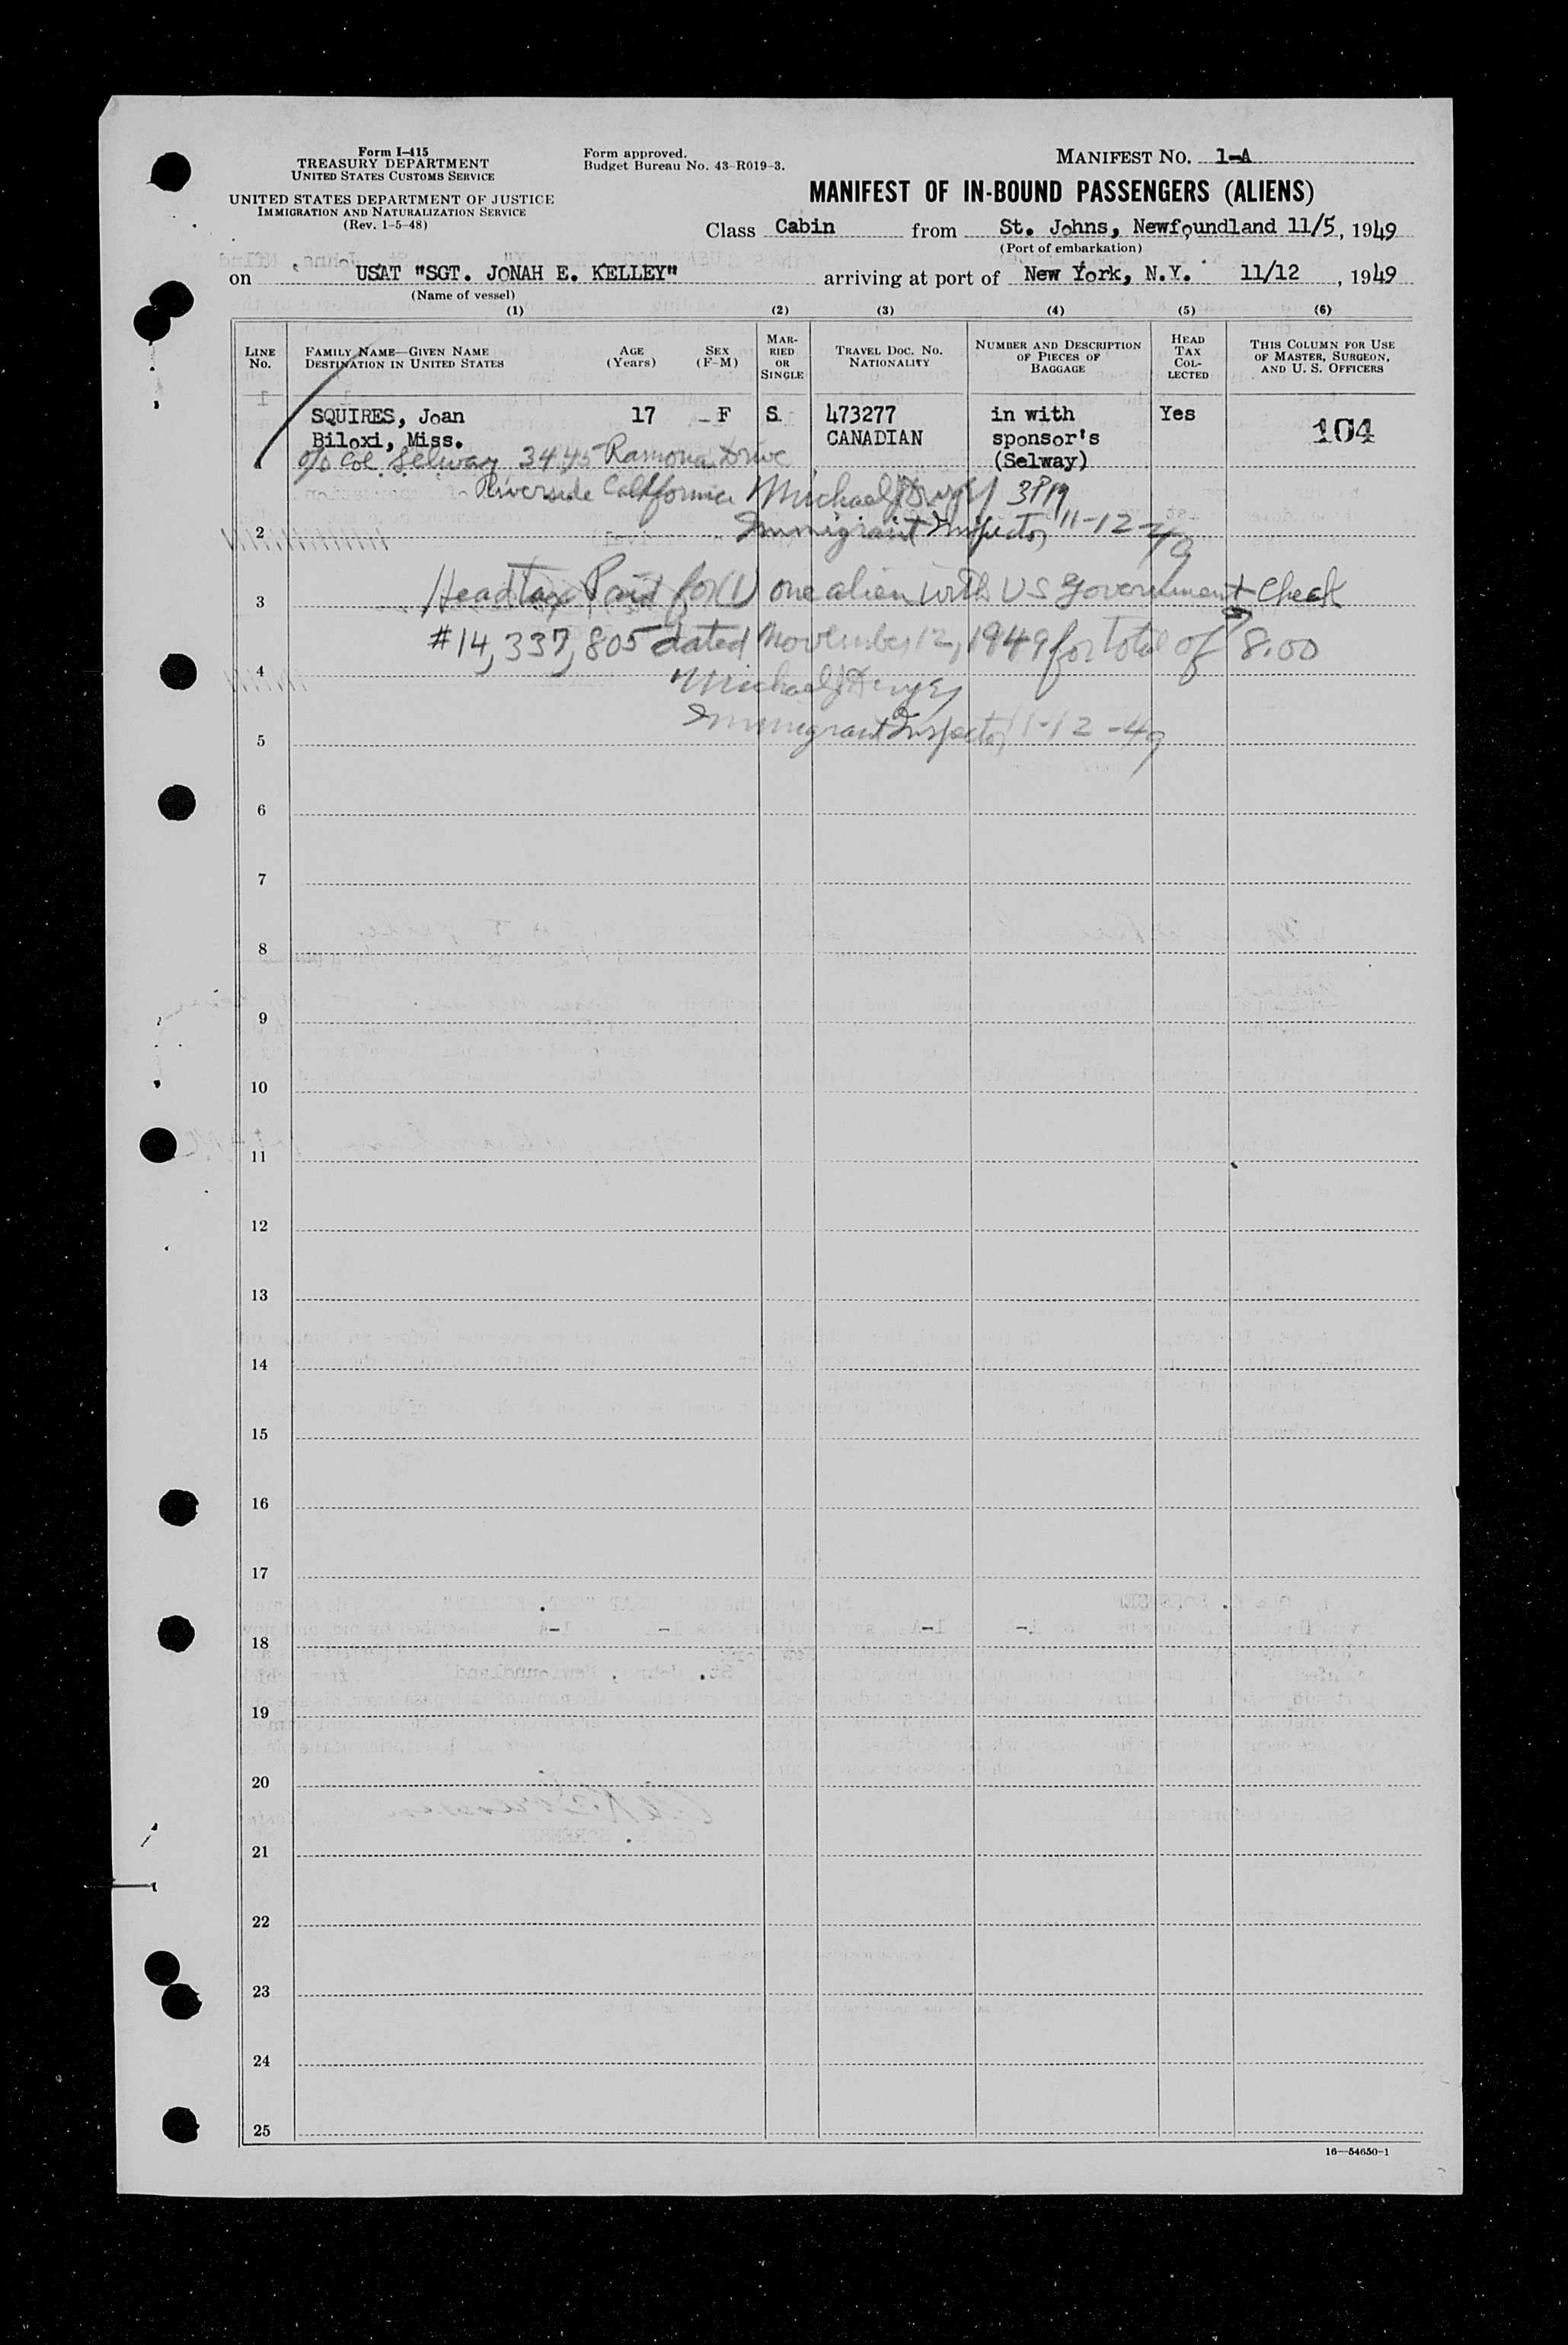 Form I-415
TREASURY DEPARTMENT
UNITED STATES CUSTOMS SERVICE
UNITED STATES DEPARTMENT OF JUSTICE
IMMIGRATION AND NATURALIZATION SERVICE
(Rev. 1-5-48)
Form approved.
Budget Bureau No. 43-R019-3.
MANIFEST NO. 1-A
MANIFEST OF IN-BOUND PASSENGERS (ALIENS)
Class Cabin from St. Johns, Newfoundland 11/5, 1949
(Port of embarkation)
on USAT "SGT. JONAH E. KELLEY" arriving at port of New York, N.Y. 11/12, 1949
(Name of vessel)
(1) (2) (3) (4) (5) (6)
LINE NO.
FAMILY NAME—GIVEN NAME
DESTINATION IN UNITED STATES
AGE
(Years)
SEX
(F-M)
MAR-
RIED
OR
SINGLE
TRAVEL DOC. NO.
NATIONALITY
NUMBER AND DESCRIPTION
OF PIECES OF
BAGGAGE
HEAD
TAX
COL-
LECTED
THIS COLUMN FOR USE
OF MASTER, SURGEON,
AND U. S. OFFICERS
SQUIRES, Joan 17 F S 473277 in with Yes 104
Biloxi, Miss. CANADIAN sponsor's
(Selway)
c/o Col Selway 3445 Ramona Drive
Riverside California Michael J 3PM
Immigrant Inspector 11-12-49
2
Head tax Paid for (1) one alien with US Government Check
3
#14,337,805 dated November 12, 1949 for total of 8.00
4
Michael J
Immigrant Inspector 11-12-49
5
6
7
8
9
10
11
12
13
14
15
16
17
18
19
20
21
22
23
24
25
16—54650-1